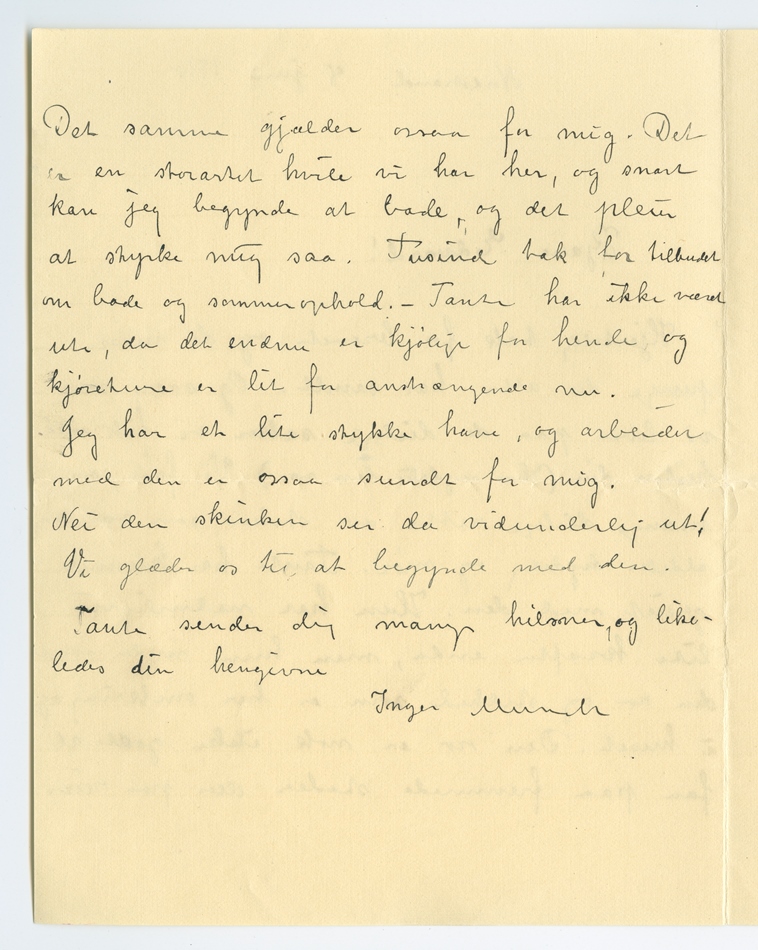 Det samme gjælder ossaa for mig. Det
er en storartet hvile vi har her, og snart
kan jeg begynde at bade, og det pleier
at styrke mig saa. Tusind tak for tilbudet
om bade og sommerophold. – Tante har ikke været
ute, da det endnu er kjølig for hende og
kjøreturene er lit for anstrængende nu.
Jeg har et lite stykke have, og arbeider
med den er ossaa sundt for mig.
Nei den skinken ser da vidunderlig ut!
Vi glæder os til at begynde med den.
Tante sender dig mange hilsner, og like-
ledes din hengivne
Inger Munch